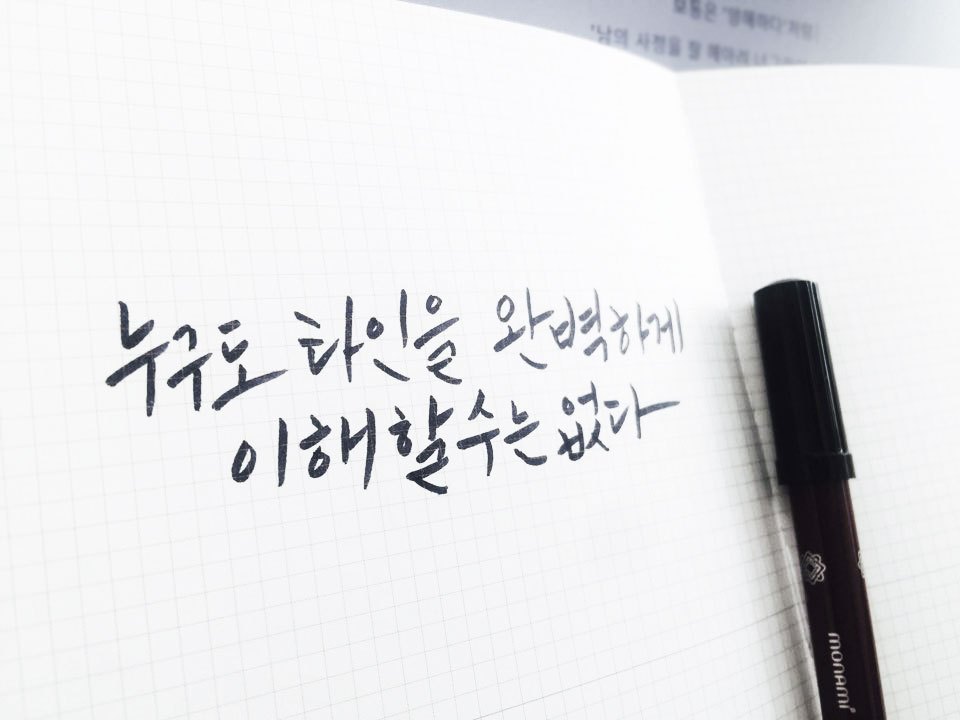 '남의 사정을 잘 헤아려
누구도 타인을 완벽하게
이해할 수는 없다
monami